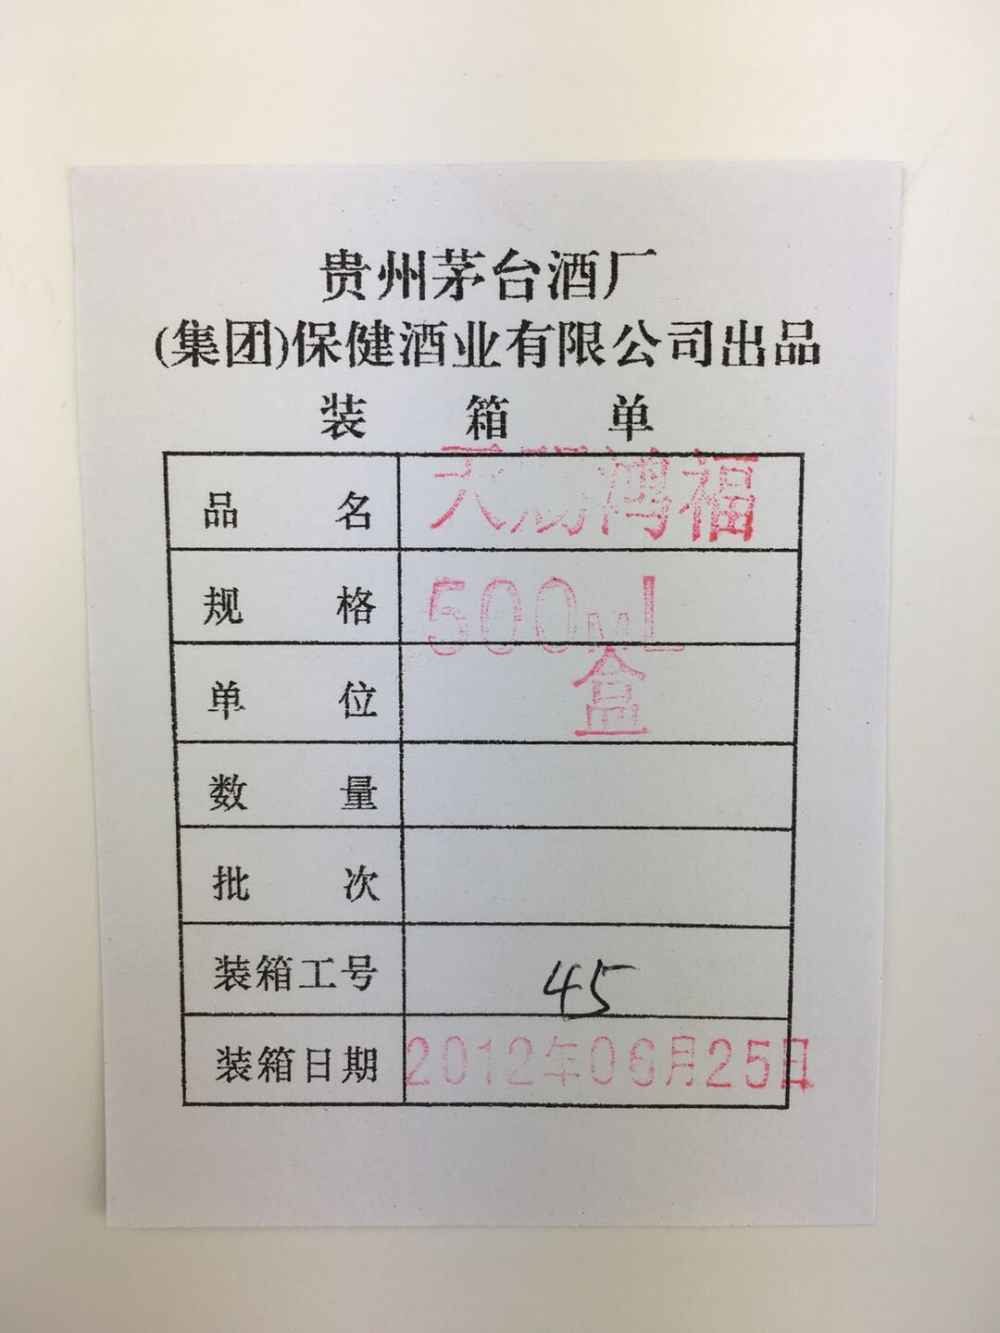 贵州茅台酒厂
(集团)保健酒业有限公司出品
装 箱 单
品 名 天赐鸿福
规 格 500ML
单 位 盒
数 量
批 次
装箱工号 45
装箱日期 2012年06月25日